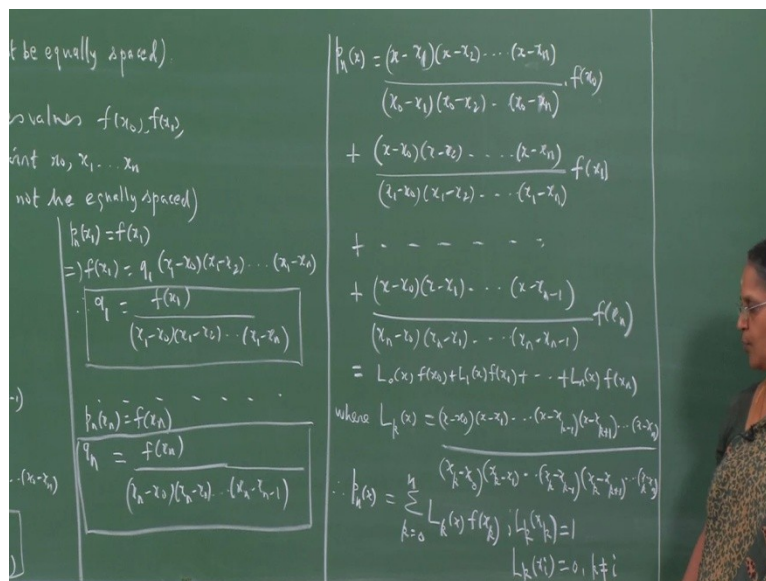 t be equally spaced).
values f(x₀), f(x₁),
x₀, x₁ ... xₙ
not be equally spaced)
pₙ(x₁) = f(x₁)
⇒ f(x₁) = q₁ (x₁-x₀)(x₁-x₂) ... (x₁-xₙ)
∴ q₁ = f(x₁) / (x₁-x₀)(x₁-x₂) ... (x₁-xₙ)
. . . . . .
pₙ(xₙ) = f(xₙ)
qₙ = f(xₙ) / (xₙ-x₀)(xₙ-x₁) ... (xₙ-xₙ₋₁)
-1)
..(x₀-xₙ)
)
pₙ(x) = (x-x₁)(x-x₂) .... (x-xₙ) / (x₀-x₁)(x₀-x₂) .. (x₀-xₙ) . f(x₀)
+ (x-x₀)(x-x₂) ..... (x-xₙ) / (x₁-x₀)(x₁-x₂) ..... (x₁-xₙ) f(x₁)
+ - - - - - - -
+ (x-x₀)(x-x₁) .... (x-xₙ₋₁) / (xₙ-x₀)(xₙ-x₁) .... (xₙ-xₙ₋₁) f(xₙ)
= L₀(x) f(x₀) + L₁(x) f(x₁) + -- + Lₙ(x) f(xₙ)
where Lₖ(x) = (x-x₀)(x-x₁) ... (x-xₖ₋₁)(x-xₖ₊₁) ... (x-xₙ) / (xₖ-x₀)(xₖ-x₁) ... (xₖ-xₖ₋₁)(xₖ-xₖ₊₁) ... (xₖ-xₙ)
∴ pₙ(x) = ∑ₖ₌₀ⁿ Lₖ(x) f(xₖ) ; Lₖ(xₖ) = 1
Lₖ(xᵢ) = 0, k ≠ i